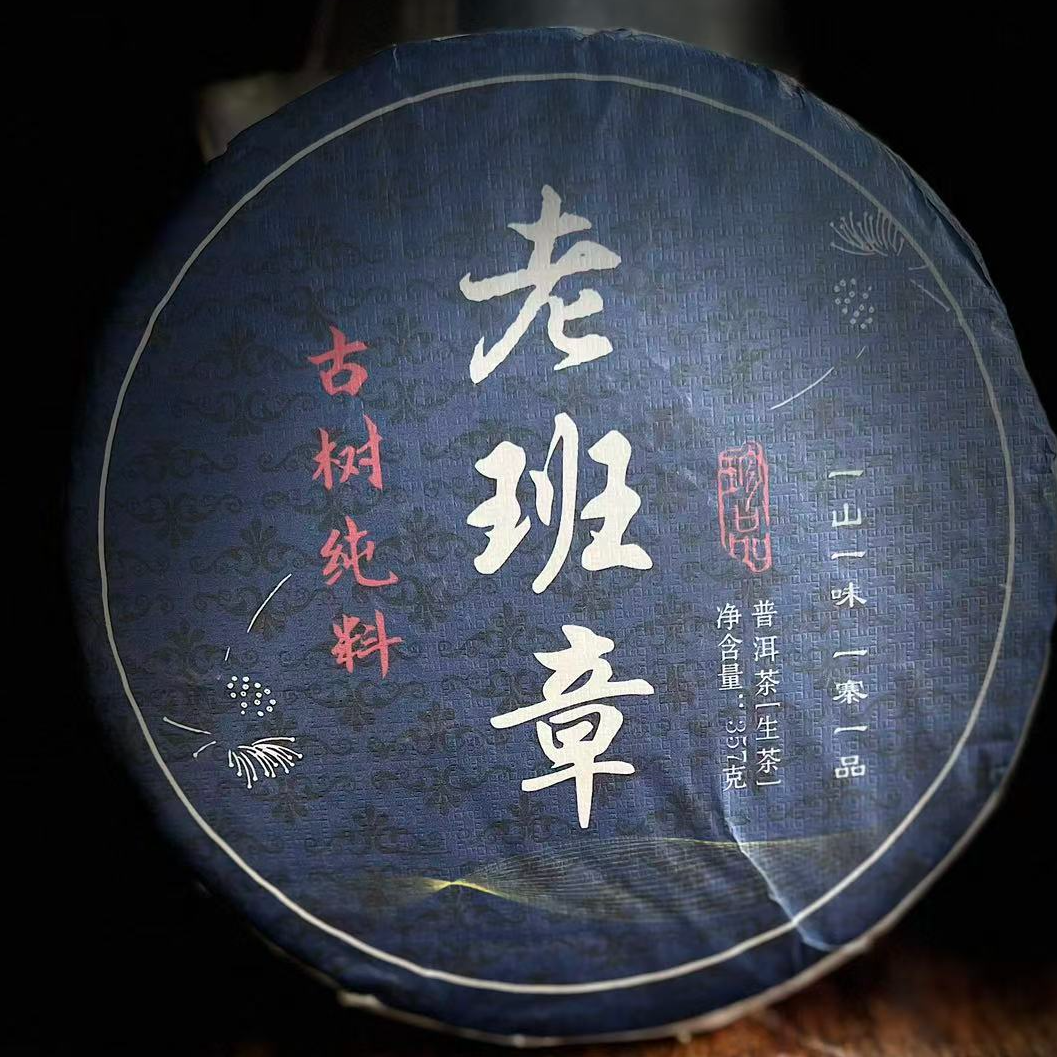 一山一味一寨一品
珍品
普洱茶[生茶]
净含量：357克
老班章
古树纯料